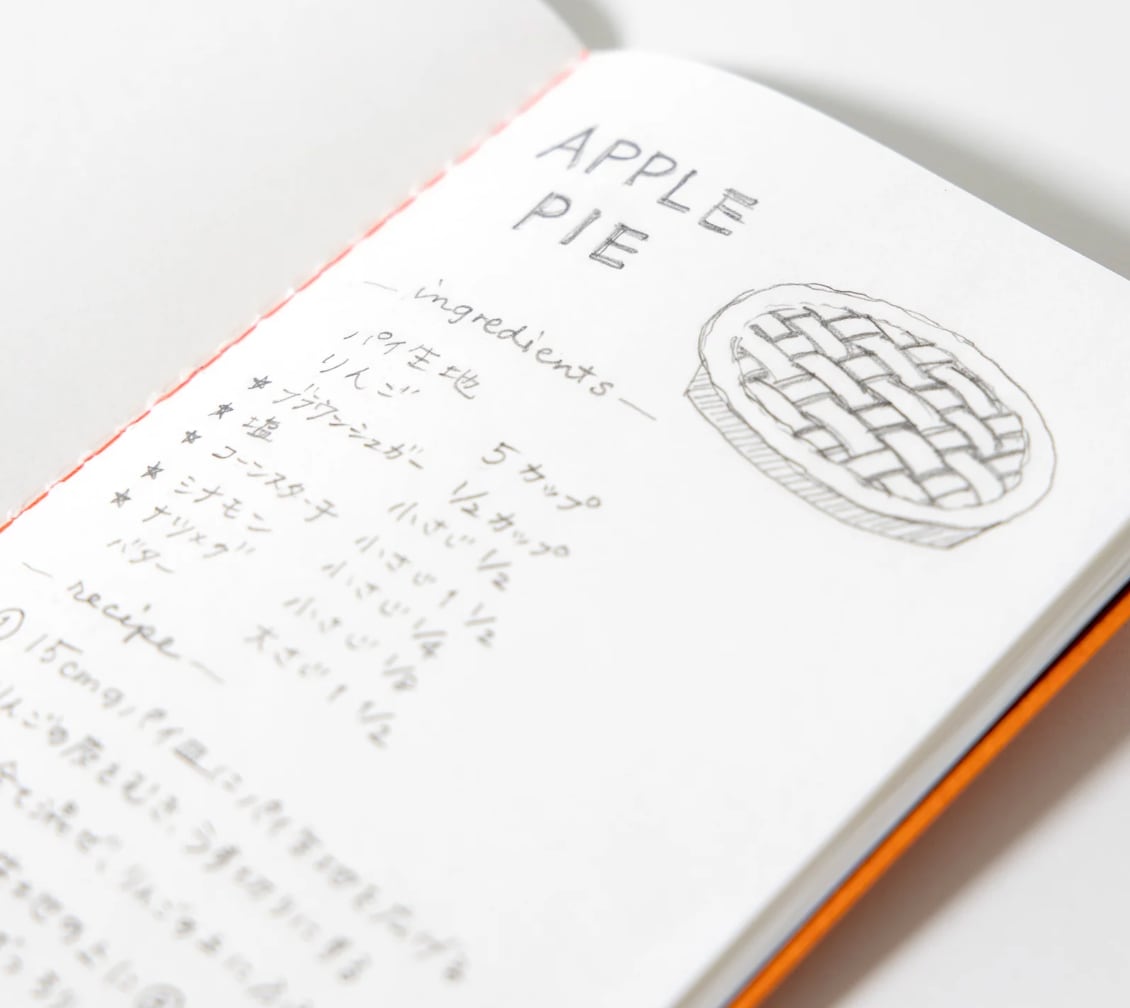 APPLE
PIE
— ingredients —
パイ生地
りんご 5カップ
★ ブラウンシュガー 1/2カップ
★ 塩 小さじ 1/2
★ コーンスターチ 小さじ 1 1/2
★ シナモン 小さじ 1/4
★ ナツメグ 小さじ 1/8
バター 大さじ 1 1/2
— recipe —
① 15cmのパイ皿にパイ生地を広げる
りんごの皮をむき、うす切りにする
混ぜ、りんご